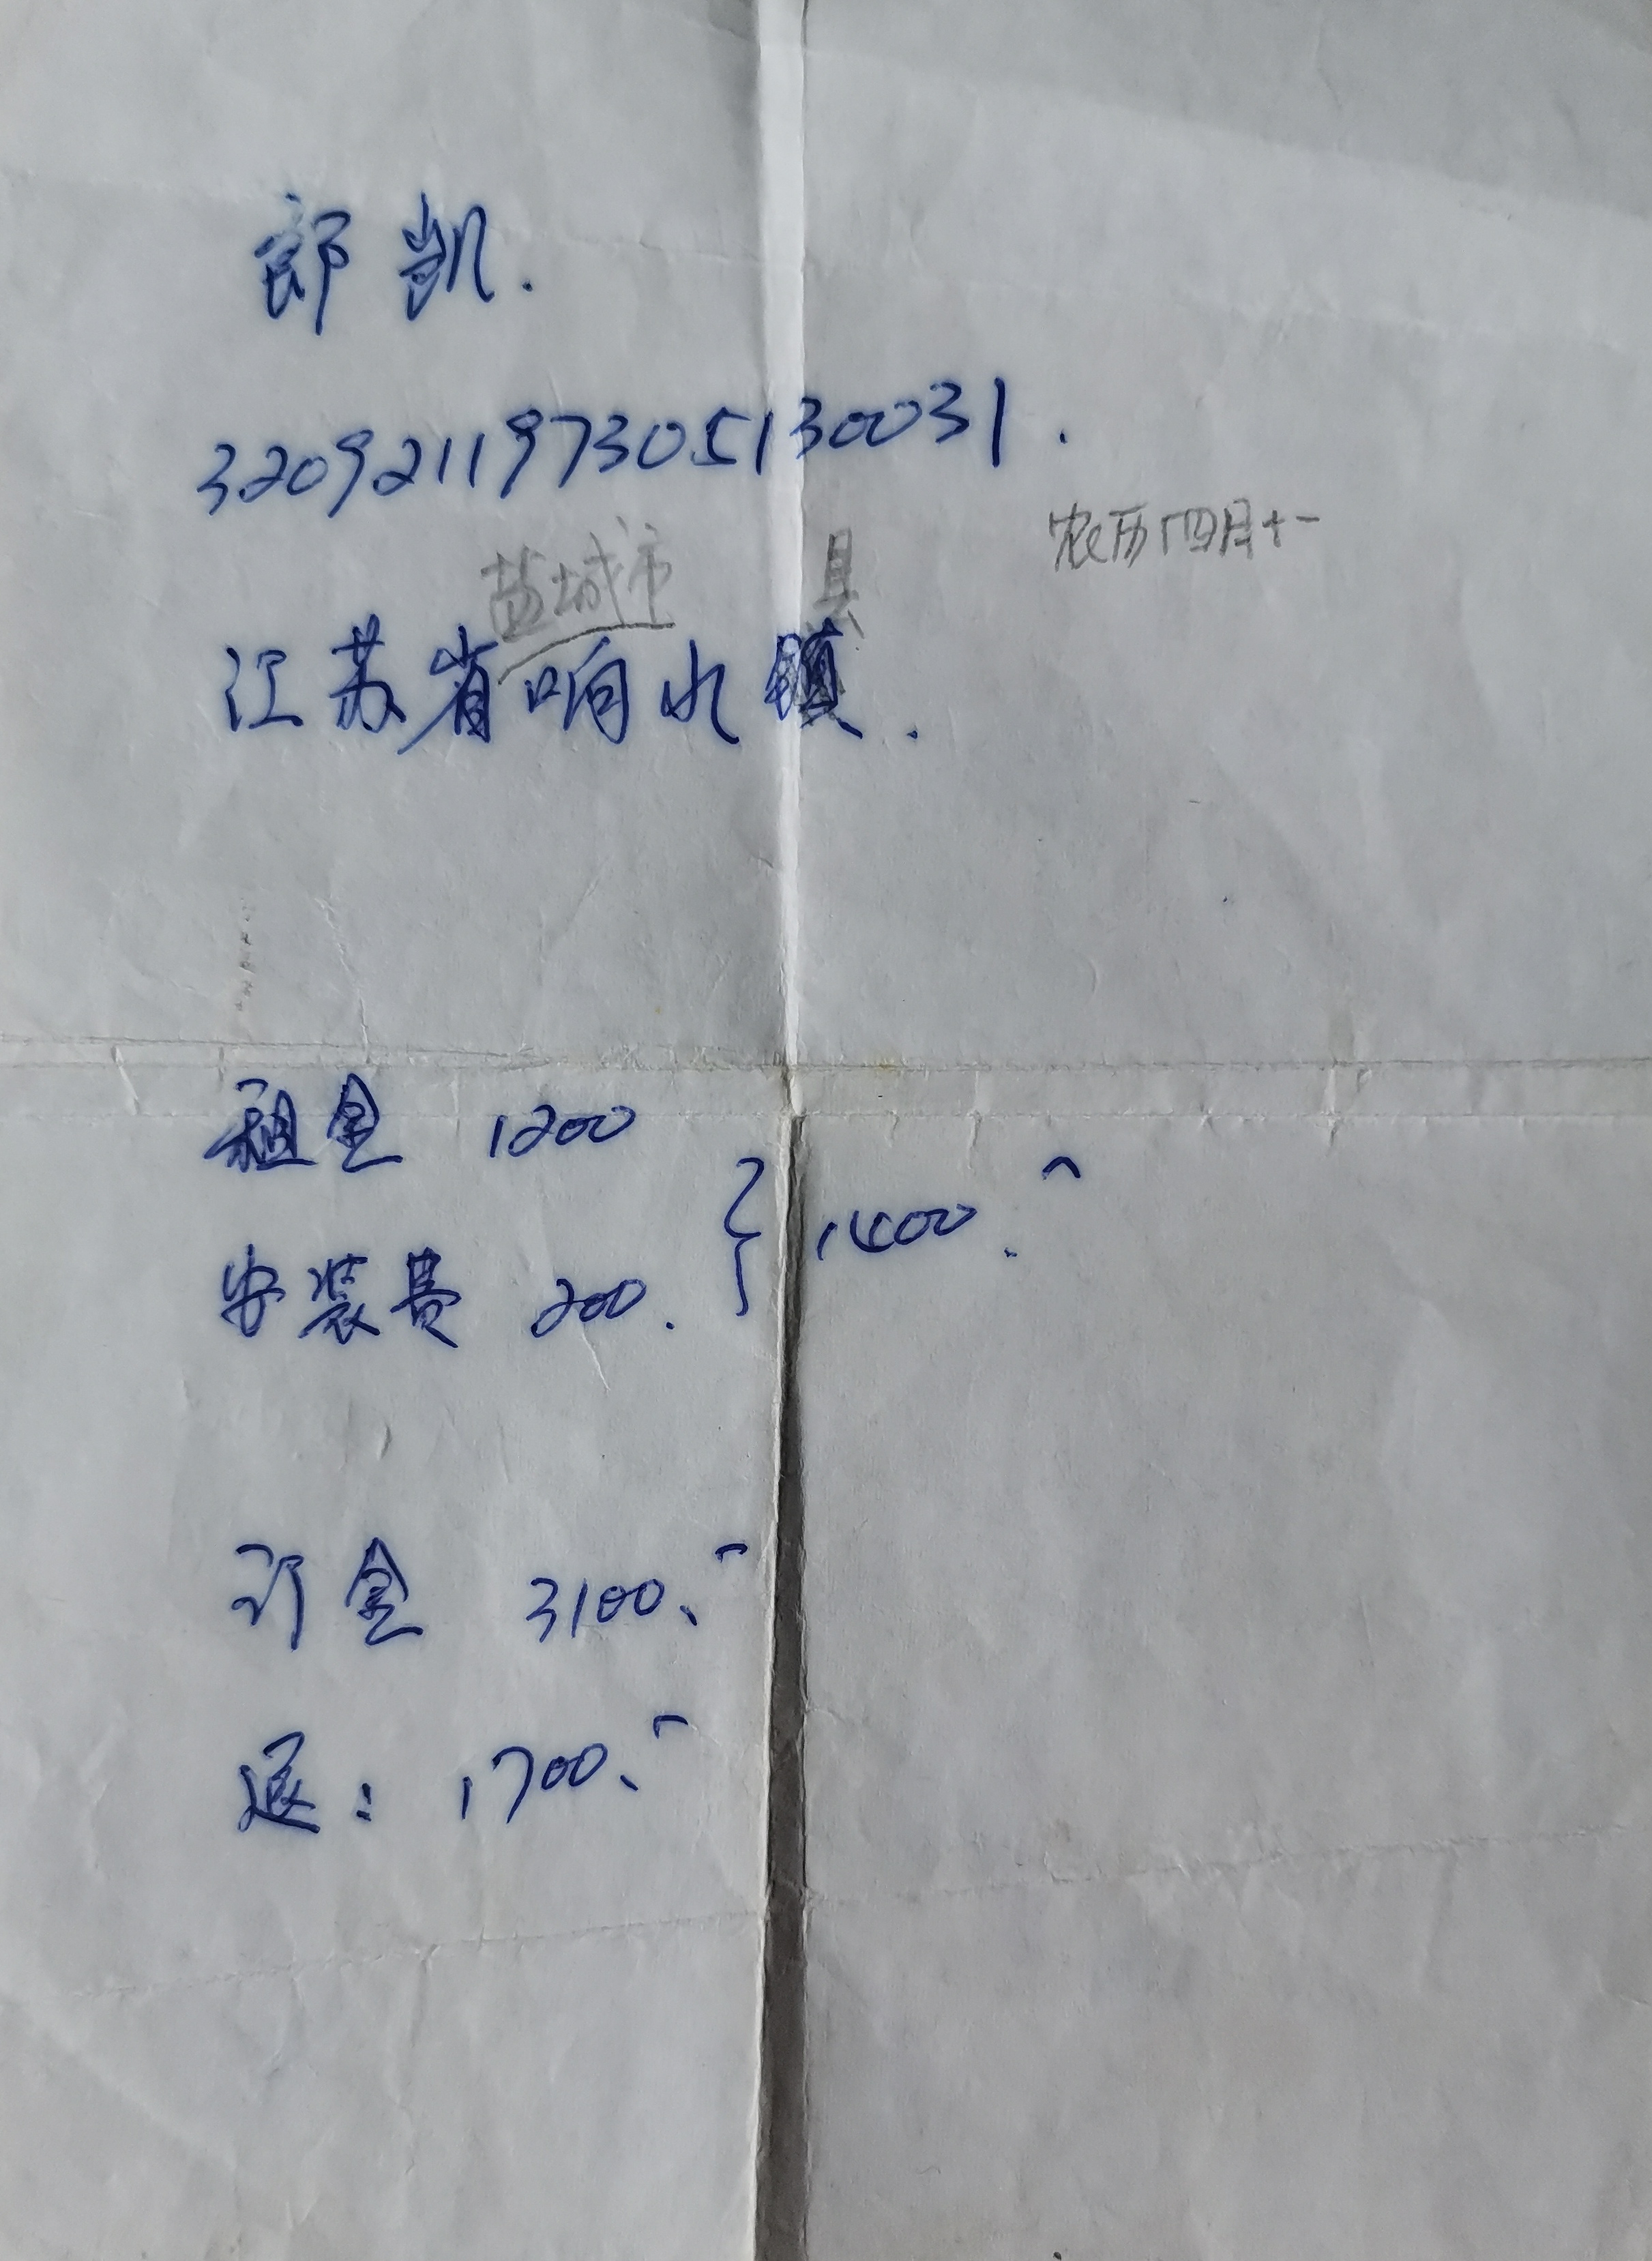 郎凯.
320921197305130031.
农历四月十一
盐城市 县
江苏省响水镇.
租金 1200
安装费 200. } 1400.
订金 3100.
退: 1700.